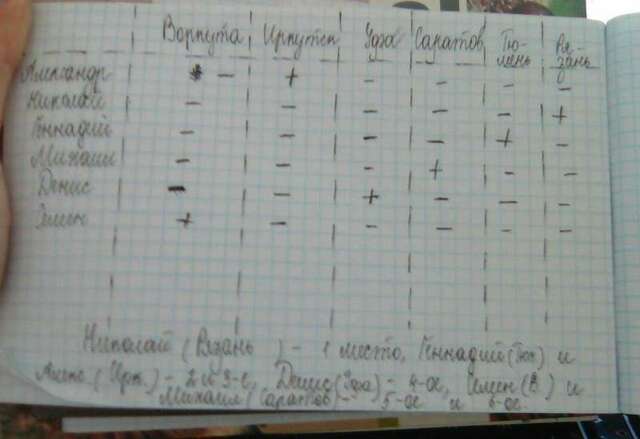 Воркута Иркутск Уфа Саратов Тю-
мень Ря-
зань
Александр - + - - - -
Николай - - - - - +
Геннадий - - - - + -
Михаил - - - + - -
Денис - - + - - -
Семён + - - - - -
Николай (Рязань) - 1 место, Геннадий (Тюм) и
Алекс (Ирк.) - 2 и 3-е, Денис (Уфа) - 4-ое, Семен (В.) и
Михаил (Саратов) - 5-ое и 6-ое